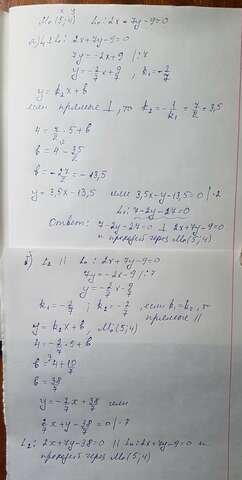 x y
M₀(5;4) L₀: 2x+7y-9=0
а) L₁ ⊥ L₀: 2x+7y-9=0
7y=-2x+9 | :7
y=-2/7x+9/7, k₁=-2/7
y=k₂x+b
если прямые ⊥, то k₂=-1/k₁=7/2=3,5
4=7/2·5+b
b=4-35/2
b=-27/2=-13,5
y=3,5x-13,5 или 3,5x-y-13,5=0 |·2
L₁: 7-2y-27=0
Ответ: 7-2y-27=0 ⊥ 2x+7y-9=0
и проходит через M₀(5;4)
б) L₂ || L₀: 2x+7y-9=0
7y=-2x-9 | :7
y=-2/7x-9/7
k₁=-2/7; k₂=-2/7, если k₁=k₂, то
прямые ||
y=k₂x+b, M₀(5;4)
4=-2/7·5+b
b=4+10/7
b=38/7
y=-2/7x+38/7 или
2/7x+y-38/7=0 |·7
L₂: 2x+7y-38=0 || L₀: 2x+7y-9=0 и
проходит через M₀(5;4)